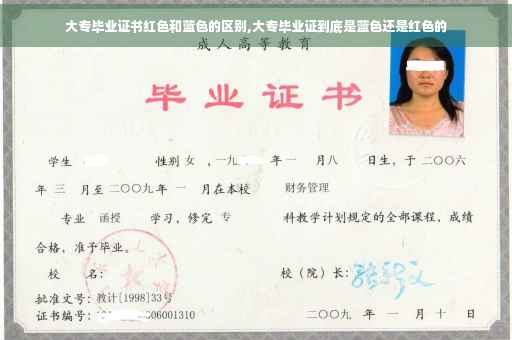 大专毕业证书红色和蓝色的区别,大专毕业证到底是蓝色还是红色的
成人高等教育
毕业证书
学生 性别 女 ,一九 年 一 月八 日生，于 二〇〇六
年 三 月至 二〇〇九 年 一 月在本校 财务管理
专业 函授 学习，修完 专 科教学计划规定的全部课程，成绩
合格，准予毕业。
校 名： 校（院）长：
批准文号：教计[1998]33号
证书编号： 06001310 二〇〇九 年 一 月 十 日